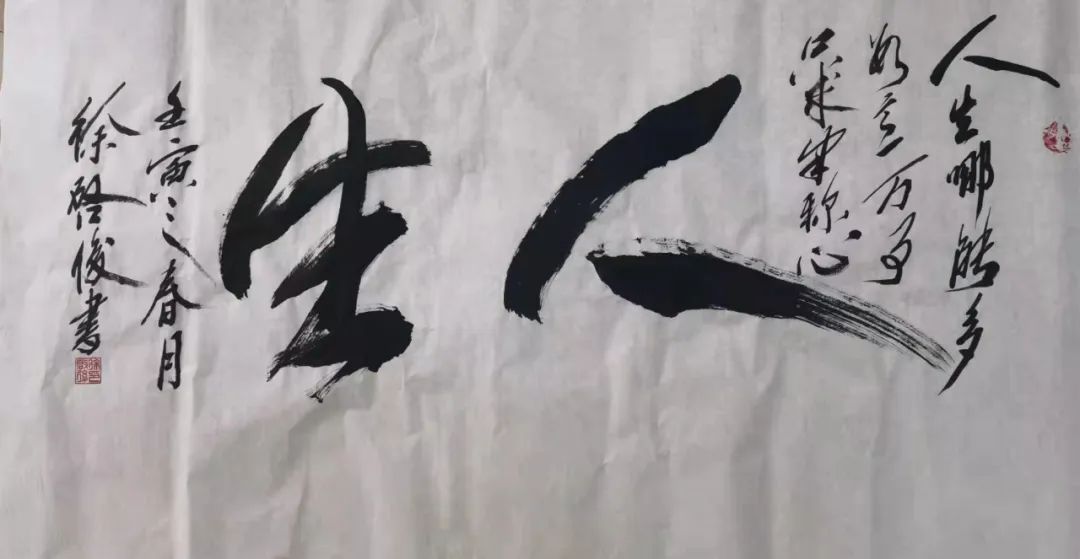 人生哪能多
如意万事
只求半称心
人生
壬寅之春月
徐啓俊書